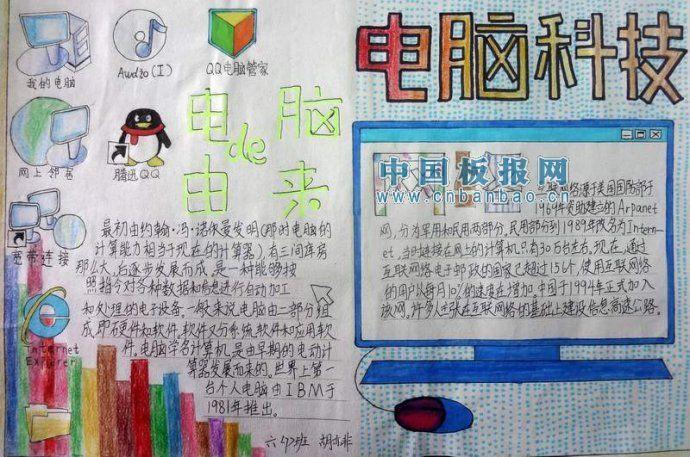 我的电脑
Audio(I)
QQ电脑管家
网上邻居
腾迅QQ
宽带连接
Internet
Explorer
电de脑
由来
最初由约翰·冯·诺依曼发明(那时电脑的
计算能力相当于现在的计算器),有三间库房
那么大,后逐步发展而成,是一种能够按
照指令对各种数据和信息进行自动加工
和处理的电子设备。一般来说,电脑由二部分组
成,即硬件和软件,软件又分系统软件和应用软
件。电脑学名计算机,是由早期的电动计
算器发展而来的。世界上第一
台个人电脑由IBM于
1981年推出。
六〈7〉班
电脑科技
中国板报网
www.cnbanbao.cn
联网络源于美国国防部于
1969年资助建立的Arpanet
网,分为军用和民用两部分,民用部分到1989年改名为Inter-
net,当时连接在网上的计算机只有30万台左右。现在,通过
互联网络电子邮政的国家已超过154个,使用互联网络
的用户以每月10%的速度在增加。中国于1994年正式加入
该网。许多人主张在互联网络的基础上建设信息高速公路。